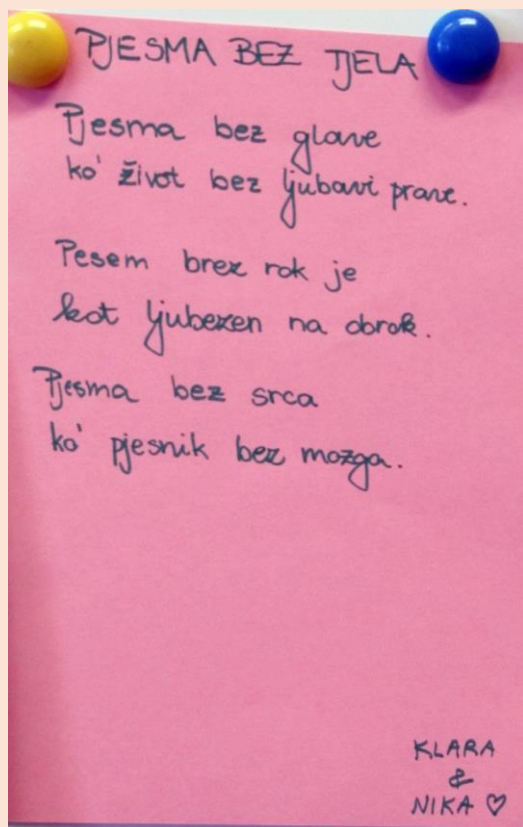 PJESMA BEZ TJELA
Pjesma bez glave
ko' život bez ljubavi prave.
Pesem brez rok je
kot ljubezen na obrok.
Pjesma bez srca
ko' pjesnik bez mozga.
KLARA
&
NIKA ♡